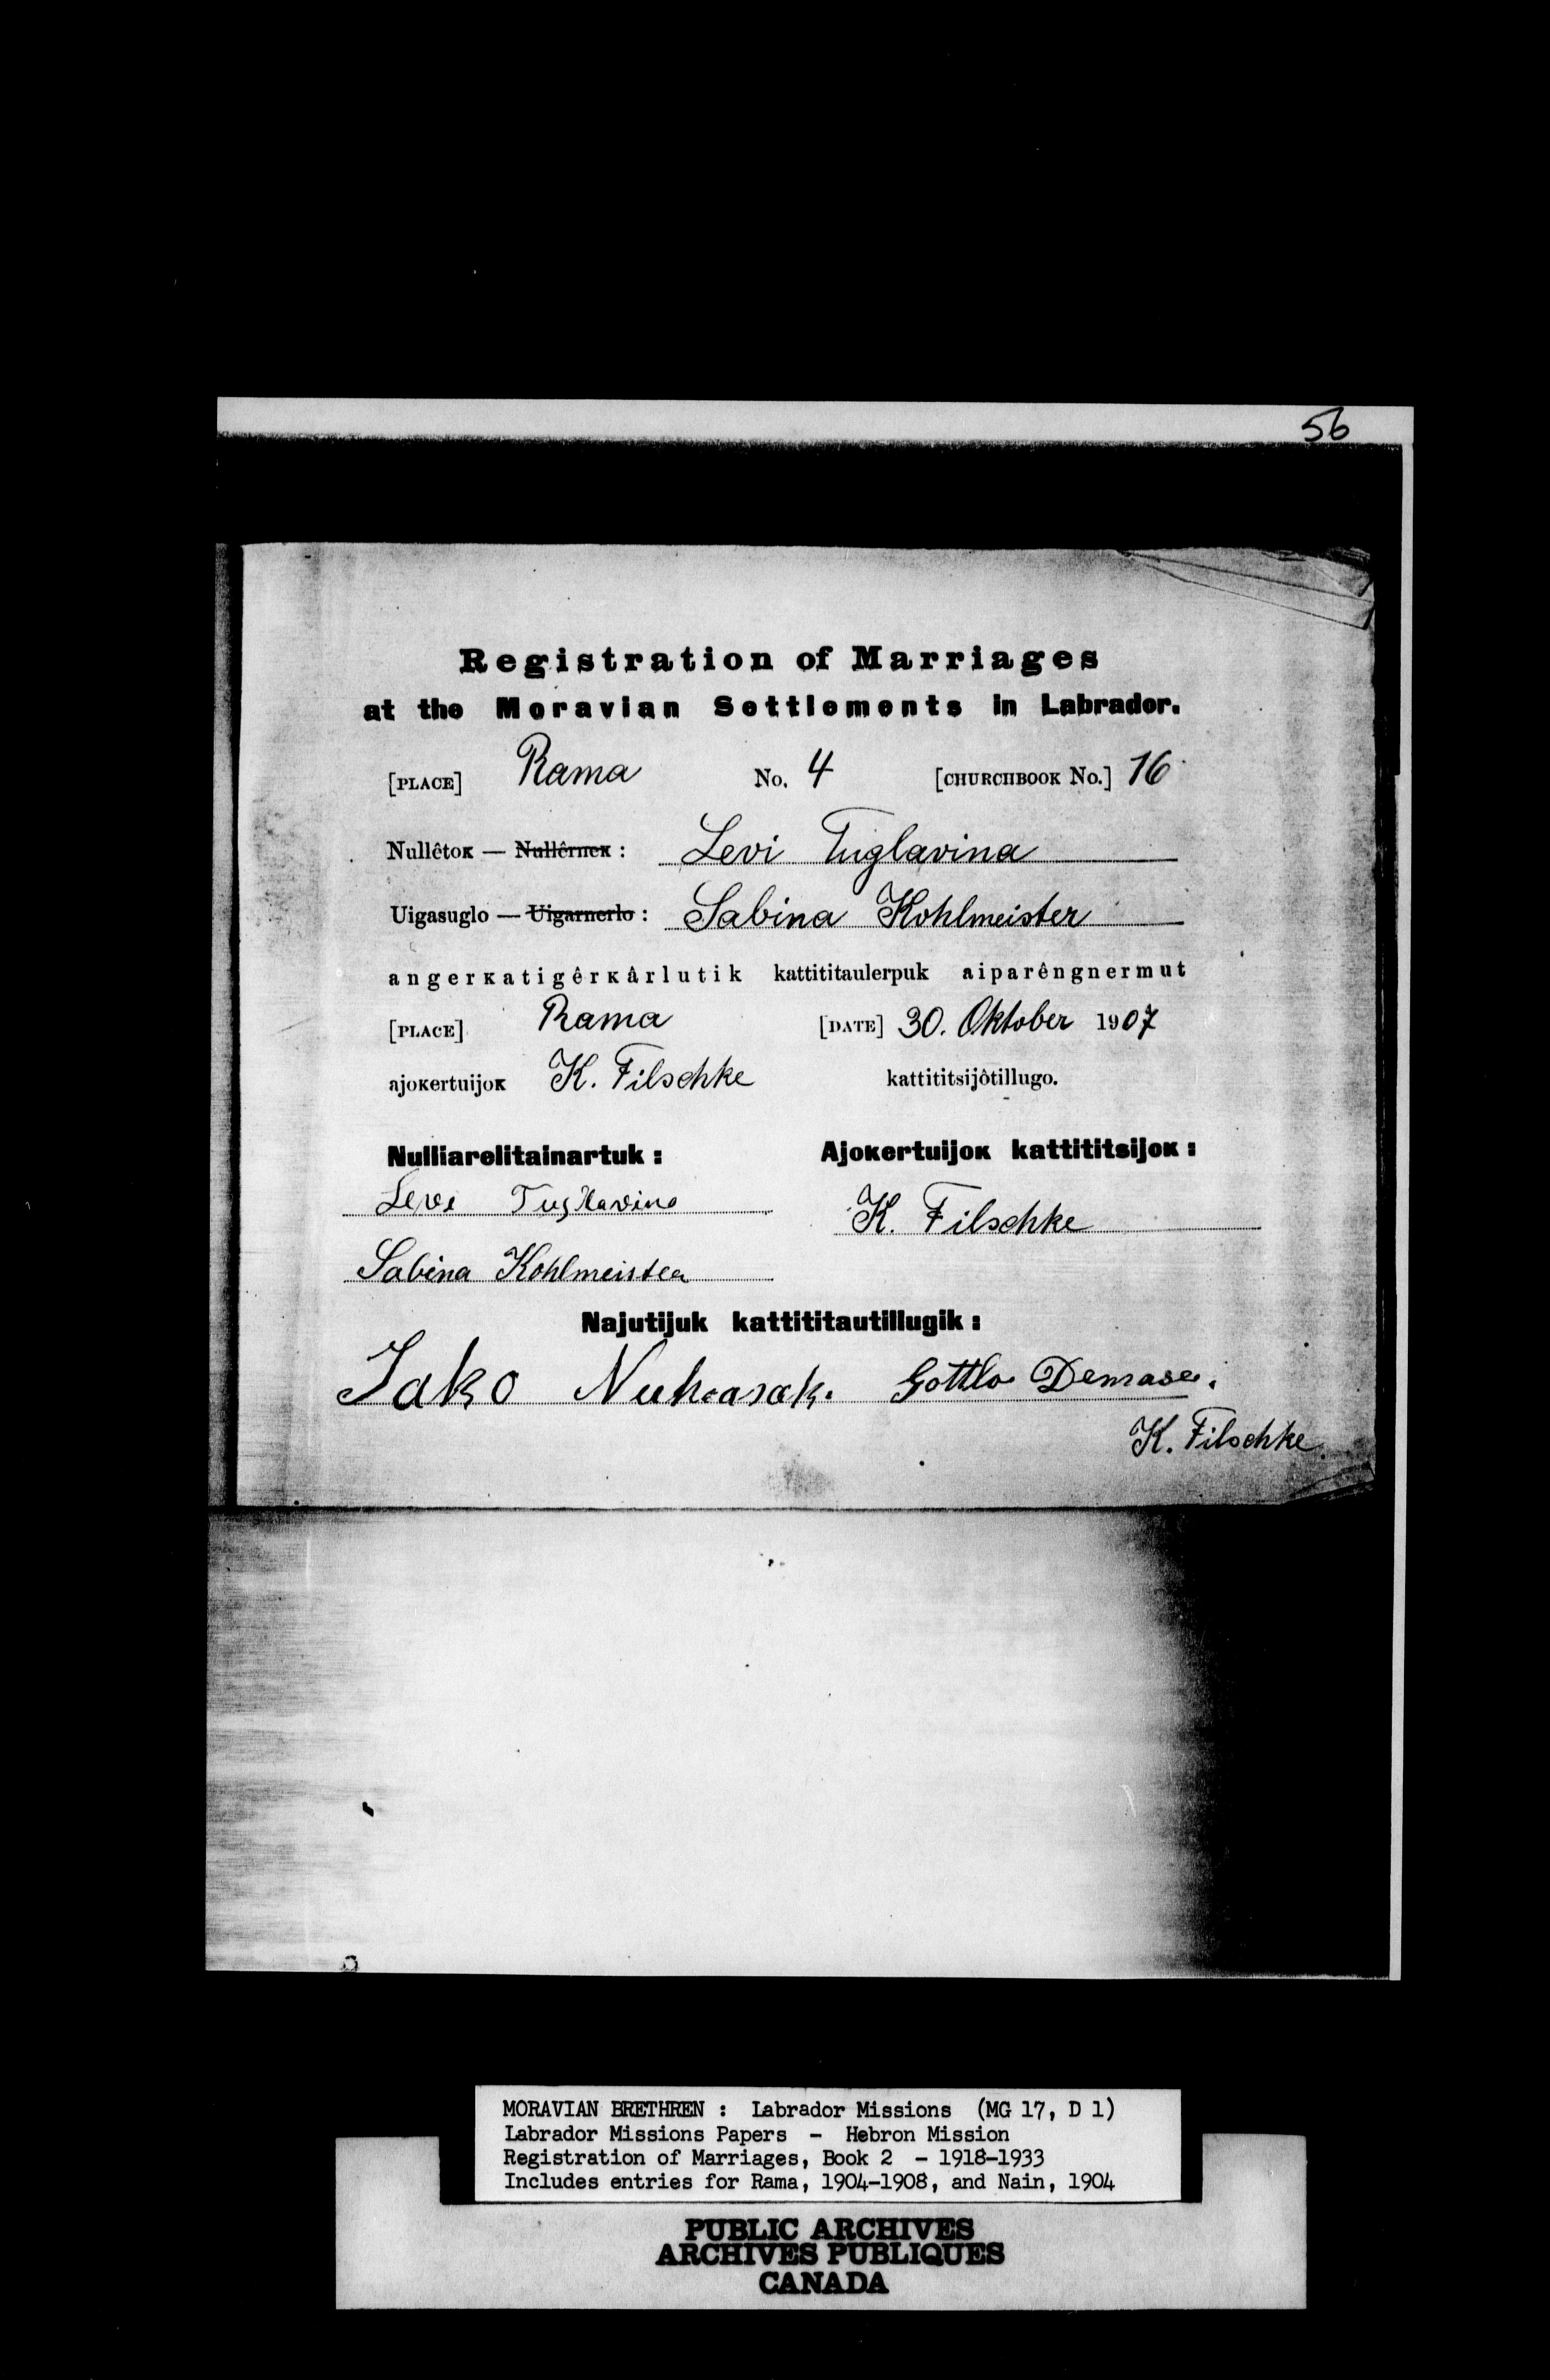 56
Registration of Marriages
at the Moravian Settlements in Labrador.
[PLACE] Rama No. 4 [CHURCHBOOK No.] 16
Nullêtoĸ — Nullêrneĸ : Levi Tuglavina
Uigasuglo — Uigarnerlo : Sabina Kohlmeister
angerĸatigêrĸârlutik kattititaulerpuk aiparêngnermut
[PLACE] Rama [DATE] 30. Oktober 1907
ajoĸertuijoĸ K. Filschke kattititsijôtillugo.
Nulliarelitainartuk : Ajoĸertuijoĸ kattititsijoĸ :
Levi Tuglavina K. Filschke
Sabina Kohlmeister
Najutijuk kattititautillugik :
Jako Gottlo
K. Filschke
MORAVIAN BRETHREN : Labrador Missions (MG 17, D 1)
Labrador Missions Papers - Hebron Mission
Registration of Marriages, Book 2 - 1918-1933
Includes entries for Rama, 1904-1908, and Nain, 1904
PUBLIC ARCHIVES
ARCHIVES PUBLIQUES
CANADA